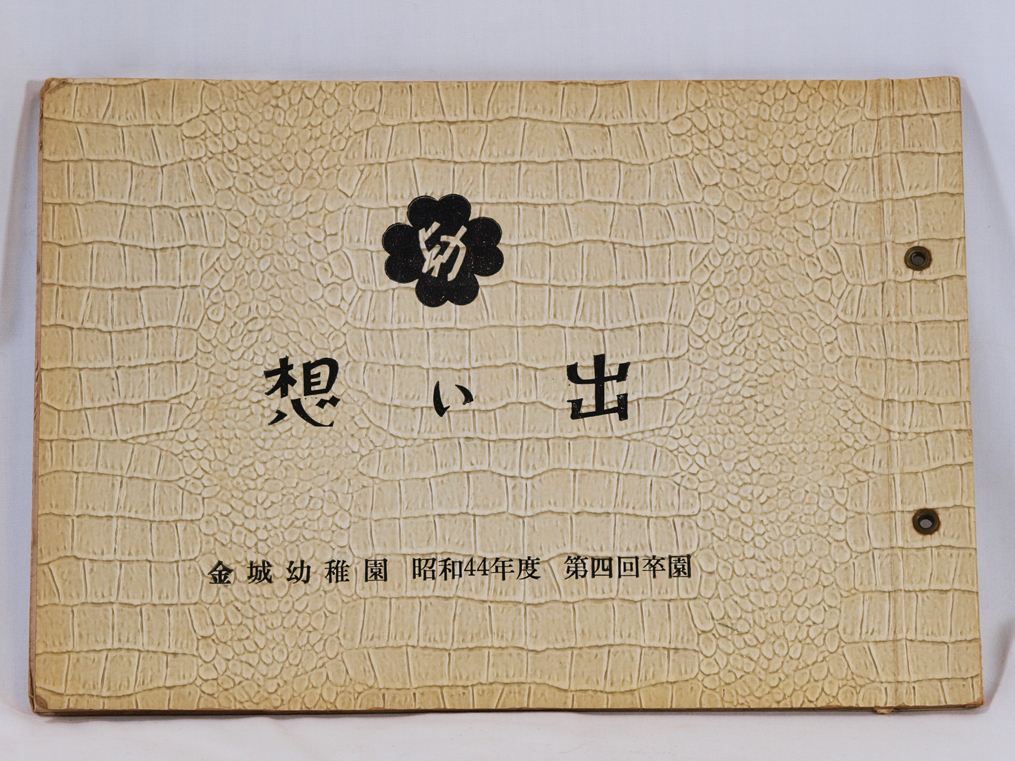 幼
想い出
金城幼稚園 昭和44年度 第四回卒園